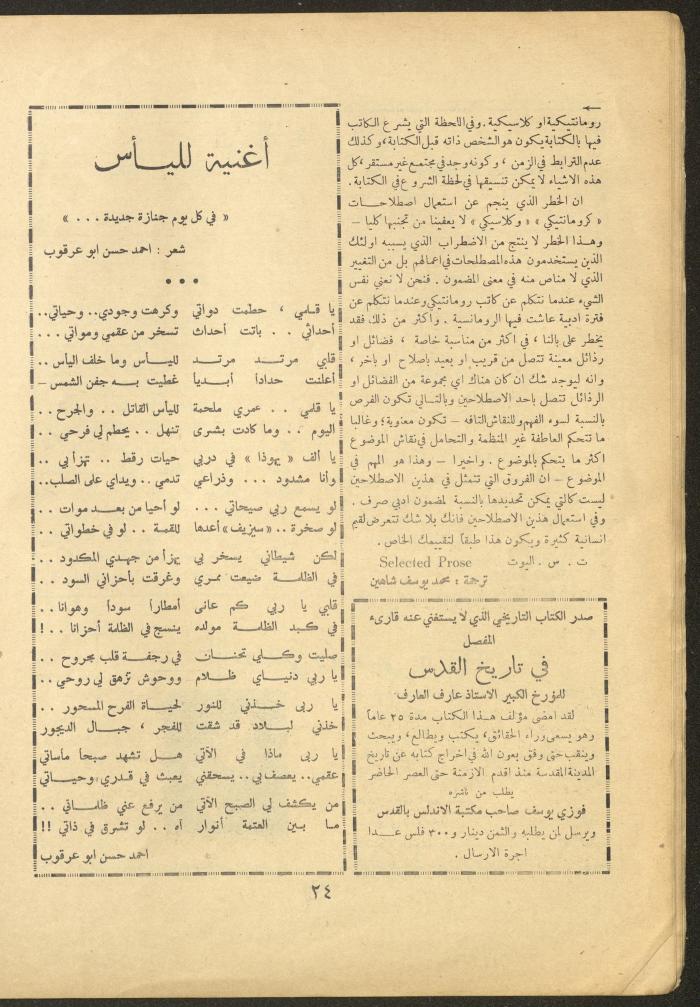 رومانتيكية او كلاسيكية . وفي اللحظة التي يشرع الكاتب
فيها بالكتابة يكون هو الشخص ذاته قبل الكتابة ، وكذلك
عدم الترابط في الزمن ، وكونه وجد في مجتمع غير مستقر ، كل
هذه الاشياء لا يمكن تنسيقها في لحظة الشروع في الكتابة .
ان الخطر الذي ينجم عن استعمال اصطلاحات
« كرومانتيكي » « وكلاسيكي » لا يعفينا من تجنبها كليا –
وهذا الخطر لا ينتج من الاضطراب الذي يسببه اولئك
الذين يستخدمون هذه المصطلحات في اعمالهم بل من التغيير
الذي لا مناص منه في معنى المضمون . فنحن لا نعني نفس
الشيء عندما نتكلم عن كاتب رومانتيكي وعندما نتكلم عن
فترة ادبية عاشت فيها الرومانسية . واكثر من ذلك فقد
يخطر على بالنا ، في اكثر من مناسبة خاصة ، فضائل او
رذائل معينة تتصل من قريب او بعيد باصلاح او باخر ،
وانه ليوجد شك ان كان هناك اي مجموعة من الفضائل او
الرذائل تتصل باحد الاصطلاحين وبالتالي تكون الفرص
بالنسبة لسوء الفهم وللنقاش التافه – تكون معنوية ؛ وغالبا
ما تتحكم العاطفة غير المنظمة والتحامل في نقاش الموضوع
اكثر ما يتحكم بالموضوع . واخيرا – وهذا هو المهم في
الموضوع – ان الفروق التي تتمثل في هذين الاصطلاحين
ليست كالتي يمكن تحديدها بالنسبة لمضمون ادبي صرف .
وفي استعمال هذين الاصطلاحين فانك بلا شك تتعرض لقيم
انسانية كثيرة ويكون هذا طبقاً لتقييمك الخاص .
ت . س . اليوت Selected Prose
ترجمة : محمد يوسف شاهين
صدر الكتاب التاريخي الذي لا يستغني عنه قارىء
المفصل
في تاريخ القدس
للمؤرخ الكبير الاستاذ عارف العارف
لقد امضى مؤلف هذا الكتاب مدة ٢٥ عاماً
وهو يسعى وراء الحقائق ، يكتب ويطالع ، ويبحث
وينقب حتى وفق بعون الله في اخراج كتابه عن تاريخ
المدينة المقدسة منذ اقدم الازمنة حتى العصر الحاضر
يطلب من ناشره
فوزي يوسف صاحب مكتبة الاندلس بالقدس
ويرسل لمن يطلبه والثمن دينار و ٣٠٠ فلس عدا
اجرة الارسال .
أغنية لليأس
« في كل يوم جنازة جديدة . . . »
شعر : احمد حسن ابو عرقوب
يا قلمي ، حطمت دواتي وكرهت وجودي .. وحياتي ..
أحداثي . . باتت أحداث تسخر من عقمي ومواتي . . .
قلبي مرتد مرتد لليأس وما خلف الياس ..
أعلنت حداداً أبدياً غطيت به جفن الشمس –
يا قلمي . . عمري ملحمة لليأس القاتل . . والجرح ..
اليوم . . وما كادت بشرى تنهل . . يحطم لي فرحي ..
يا ألف « يهوذا » في دربي حيات رقط .. تهزأ بي ..
وأنا مشدود ... وذراعي تدمى .. ويداي على الصلب ..
لو يسمع ربي صيحاتي ... لو أحيا من بعد موات ..
لو صخرة .. « سيزيف » أعدها للقمة .. لو في خطواتي ..
لكن شيطاني يسخر بي يهزأ من جهدي المكدود ..
في الظلمة ضيعت ممري وغرقت بأحزاني السود ..
قلبي يا ربي كم عانى أمطاراً سوداً وهوانا ..
في كبد الظلمة مولده ينسج في الظلمة أحزانا .. !
صليت وكلي تحنان في رجفة قلب مجروح ..
يا ربي دنياي ظلام ووحوش تزهق لي روحي ..
يا ربى خذني للنور لحياة الفرح المسحور ..
خذني لبلاد قد شقت للفجر ، جبال الديجور
يا ربى ماذا في الآتي هل تشهد صبحاً مأساتي
عقمي .. يعصف بي .. يسحقني يعبث في قدري وحياتي
من يكشف لي الصبح الآتي من يرفع عني ظلماتي ..
ما بين العتمة أنوار آه .. لو تشرق في ذاتي !!
احمد حسن ابو عرقوب
٢٤